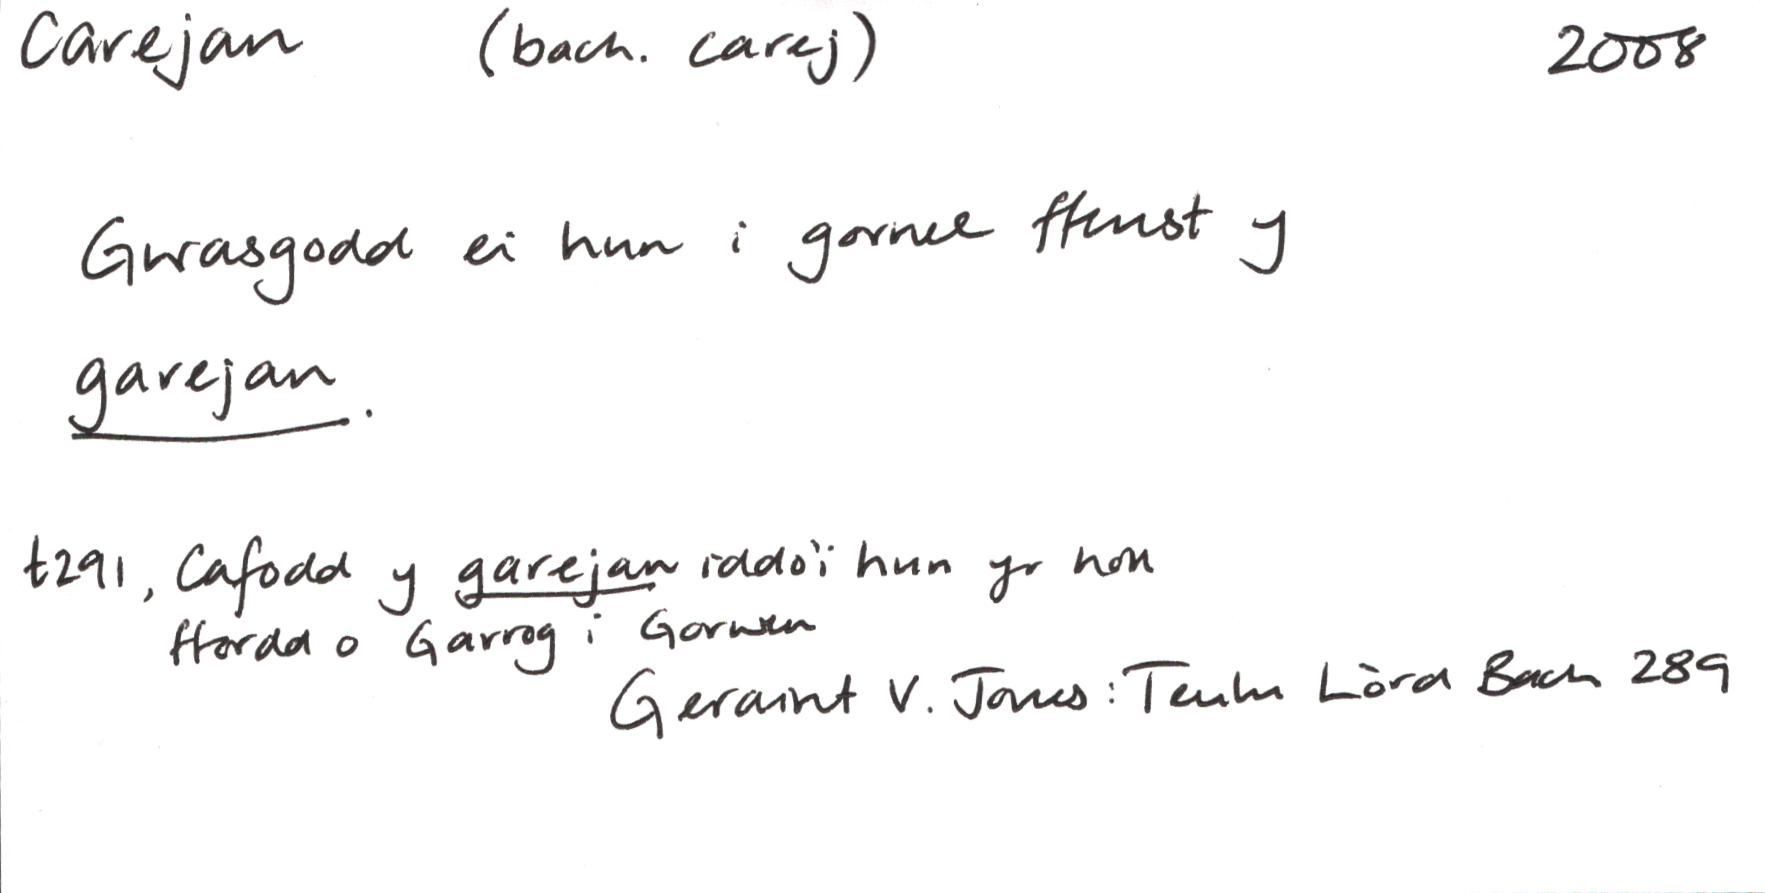 Carejan (bach. carej) 2008
Gwrasgodd ei hun i gornel ffenest y
garejan.
t291, Cafodd y garejan iddo'i hun yr holl
ffordd o Garrog i Gorwen
Geraint V. Jones: Teulu Lòrd Bach 289